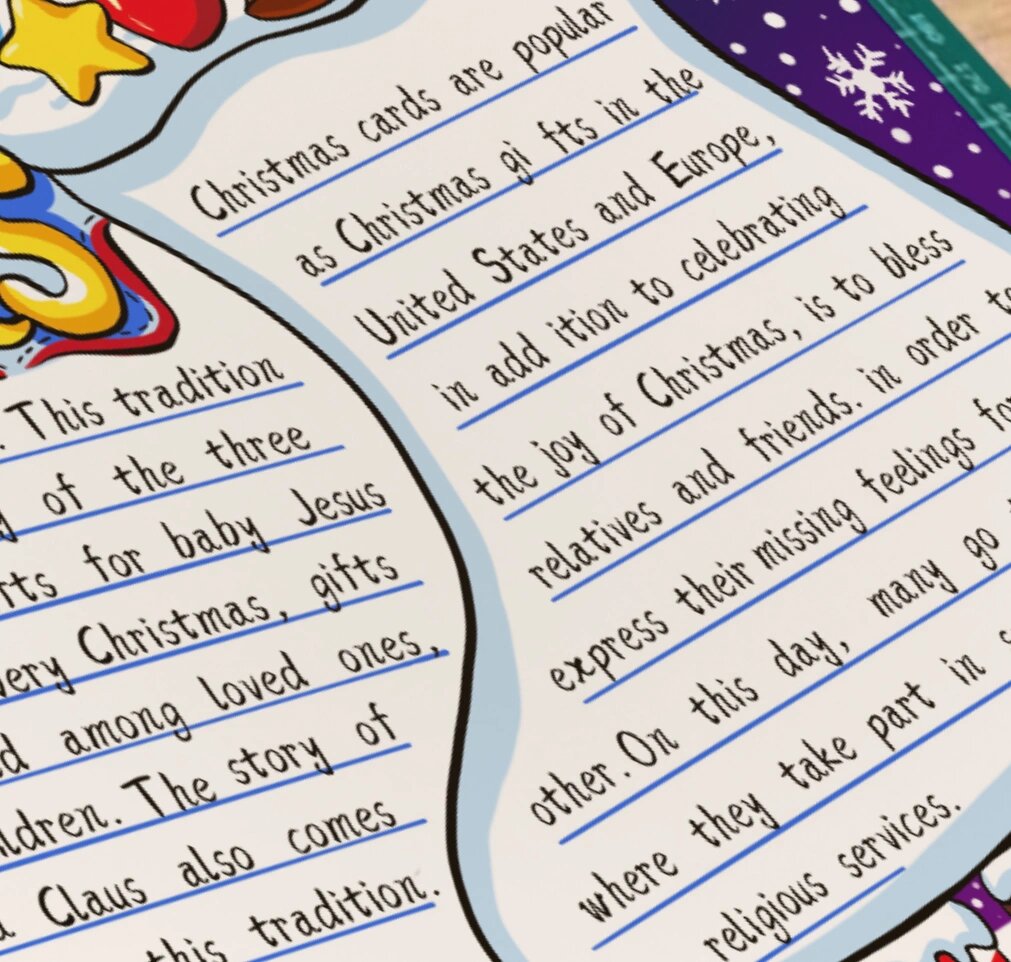 . This tradition
of the three
for baby Jesus
Christmas, gifts
among loved ones,
The story of
Claus also comes
this tradition.
Christmas cards are popular
as Christmas gi fts in the
United States and Europe,
in add ition to celebrating
the joy of Christmas, is to bless
relatives and friends. in order
express their missing feelings
other.On this day, many go
where they take part in
religious services.